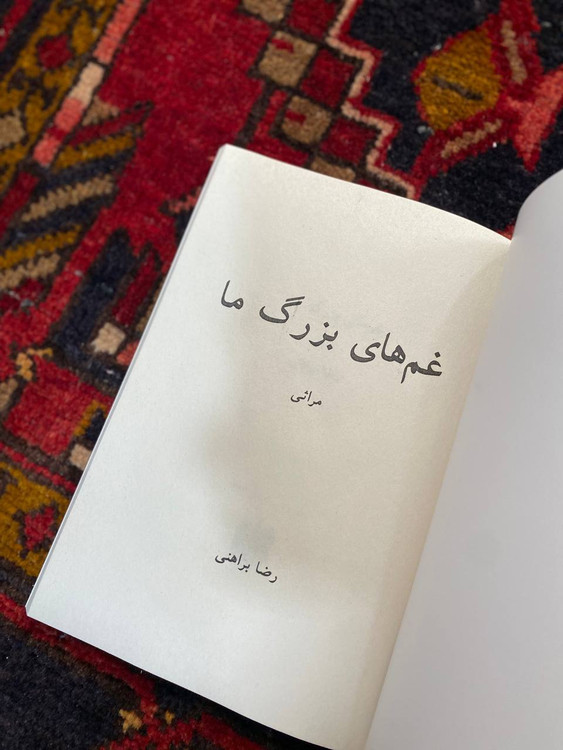 غم‌های بزرگ ما
مراثی
رضا براهنی